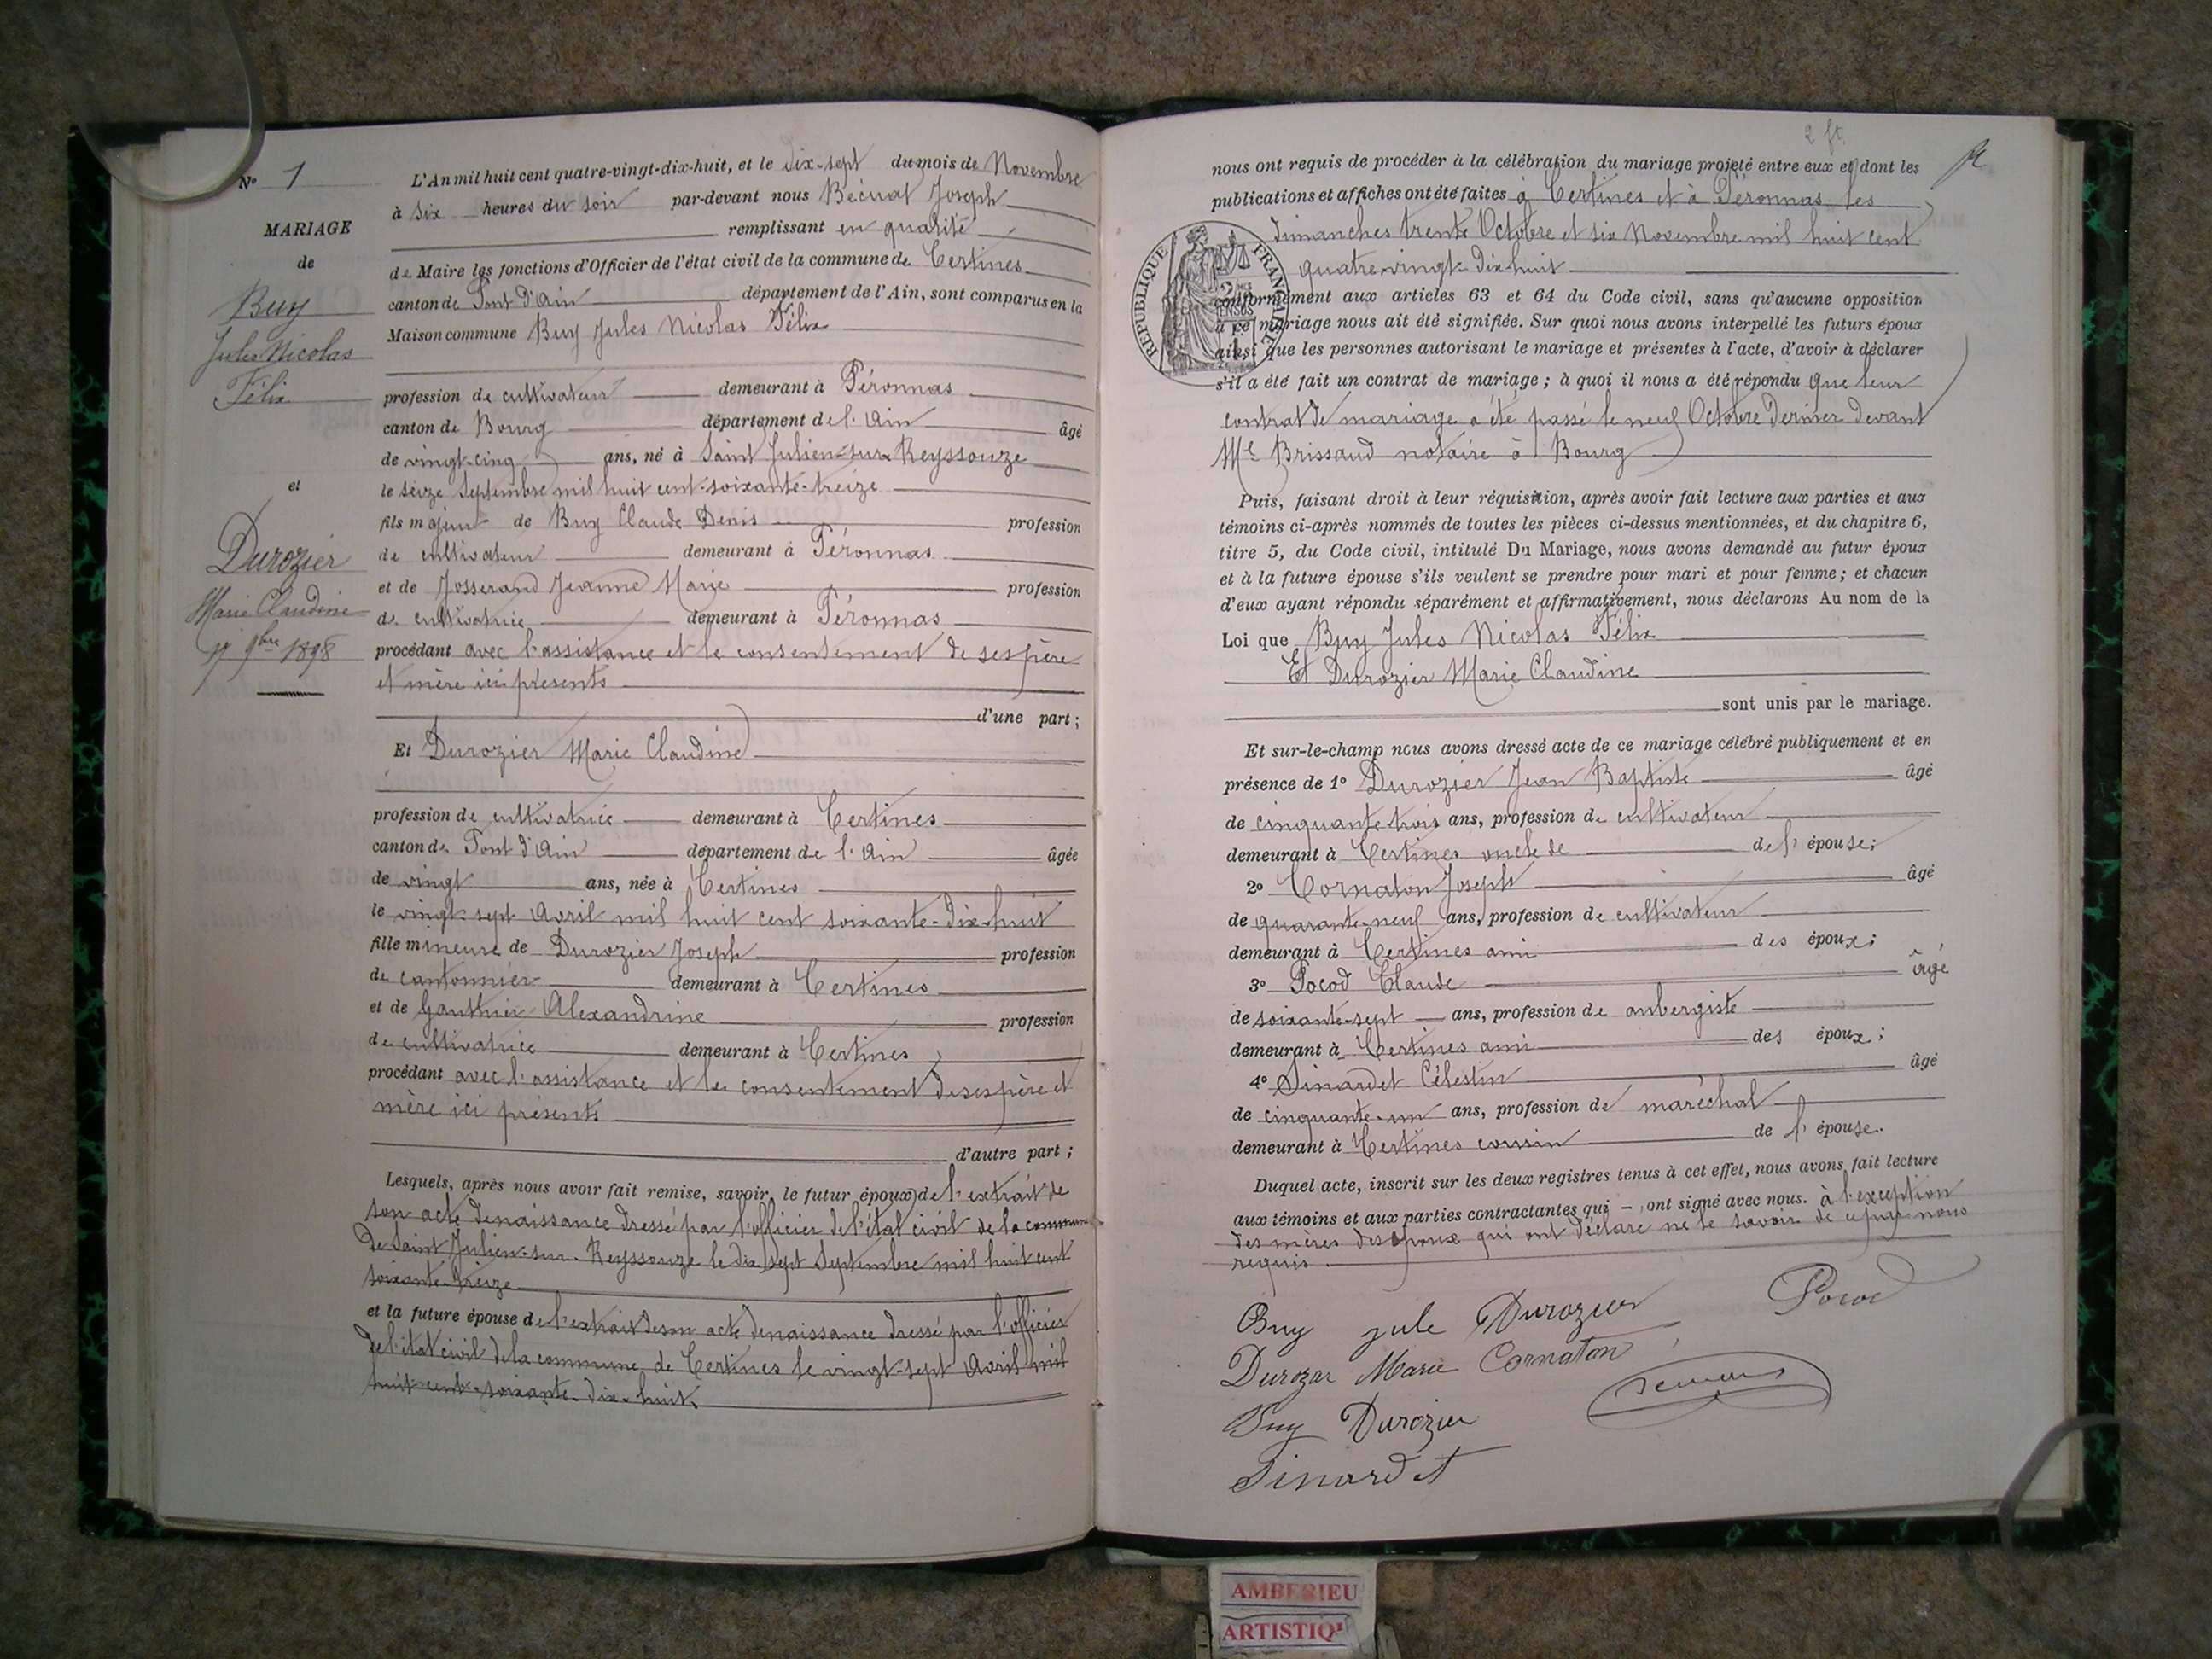 N° 1
MARIAGE
de
Buy
Jules Nicolas
Félix
et
Durozier
Marie Claudine
17 9bre 1898
L'An mil huit cent quatre-vingt-dix-huit, et le dix-sept du mois de Novembre
à six heures du soir par-devant nous Bécuat Joseph
remplissant en qualité
de Maire les fonctions d'Officier de l'état civil de la commune de Certines
canton de Pont d'Ain département de l'Ain, sont comparus en la
Maison commune Buy Jules Nicolas Félix
profession de cultivateur demeurant à Péronnas
canton de Bourg département de l'Ain âgé
de vingt-cinq ans, né à Saint Julien-sur-Reyssouze
le seize Septembre mil huit cent-soixante-treize
fils majeur de Buy Claude Denis profession
de cultivateur demeurant à Péronnas
et de Josserand Jeanne Marie profession
de cultivatrice demeurant à Péronnas
procédant avec l'assistance et le consentement de ses père
et mère ici présents
d'une part ;
Et Durozier Marie Claudine
profession de cultivatrice demeurant à Certines
canton de Pont d'Ain département de l'Ain âgée
de vingt ans, née à Certines
le vingt-sept Avril mil huit cent soixante-dix-huit
fille mineure de Durozier Joseph profession
de cantonnier demeurant à Certines
et de Gauthier Alexandrine profession
de cultivatrice demeurant à Certines
procédant avec l'assistance et le consentement de ses père et
mère ici présents
d'autre part ;
Lesquels, après nous avoir fait remise, savoir, le futur époux de l'extrait de
son acte de naissance dressé par l'officier de l'état civil de la commune
de Saint Julien-sur-Reyssouze le dix sept Septembre mil huit cent
soixante-treize
et la future épouse de l'extrait de son acte de naissance dressé par l'officier
de l'état civil de la commune de Certines le vingt-sept Avril mil
huit-cent-soixante-dix-huit.
2 ft.
nous ont requis de procéder à la célébration du mariage projeté entre eux et dont les
publications et affiches ont été faites à Certines et à Péronnas les
dimanches trente Octobre et six Novembre mil huit cent
quatre-vingt-dix-huit
RÉPUBLIQUE FRANÇAISE
conformément aux articles 63 et 64 du Code civil, sans qu'aucune opposition
à ce mariage nous ait été signifiée. Sur quoi nous avons interpellé les futurs époux
ainsi que les personnes autorisant le mariage et présentes à l'acte, d'avoir à déclarer
s'il a été fait un contrat de mariage ; à quoi il nous a été répondu que leur
contrat de mariage a été passé le neuf Octobre dernier devant
Me Brissaud notaire à Bourg
Puis, faisant droit à leur réquisition, après avoir fait lecture aux parties et aux
témoins ci-après nommés de toutes les pièces ci-dessus mentionnées, et du chapitre 6,
titre 5, du Code civil, intitulé Du Mariage, nous avons demandé au futur époux
et à la future épouse s'ils veulent se prendre pour mari et pour femme ; et chacun
d'eux ayant répondu séparément et affirmativement, nous déclarons Au nom de la
Loi que Buy Jules Nicolas Félix
Et Durozier Marie Claudine
sont unis par le mariage.
Et sur-le-champ nous avons dressé acte de ce mariage célébré publiquement et en
présence de 1° Durozier Jean Baptiste âgé
de cinquante-trois ans, profession de cultivateur
demeurant à Certines oncle de de l'épouse ;
2° Cornaton Joseph âgé
de quarante-neuf ans, profession de cultivateur
demeurant à Certines ami des époux ;
3° Pocod Claude âgé
de soixante-sept ans, profession de aubergiste
demeurant à Certines ami des époux ;
4° Sinardet Célestin âgé
de cinquante-un ans, profession de maréchal
demeurant à Certines cousin de l'épouse.
Duquel acte, inscrit sur les deux registres tenus à cet effet, nous avons fait lecture
aux témoins et aux parties contractantes qui -, ont signé avec nous. à l'exception
des mères des époux qui ont déclaré ne le savoir de ce par nous
requis
Buy jule Durozier Pocod
Durozar Marie Cornaton
Buy Durozier
Sinardet
AMBERIEU
ARTISTIQ